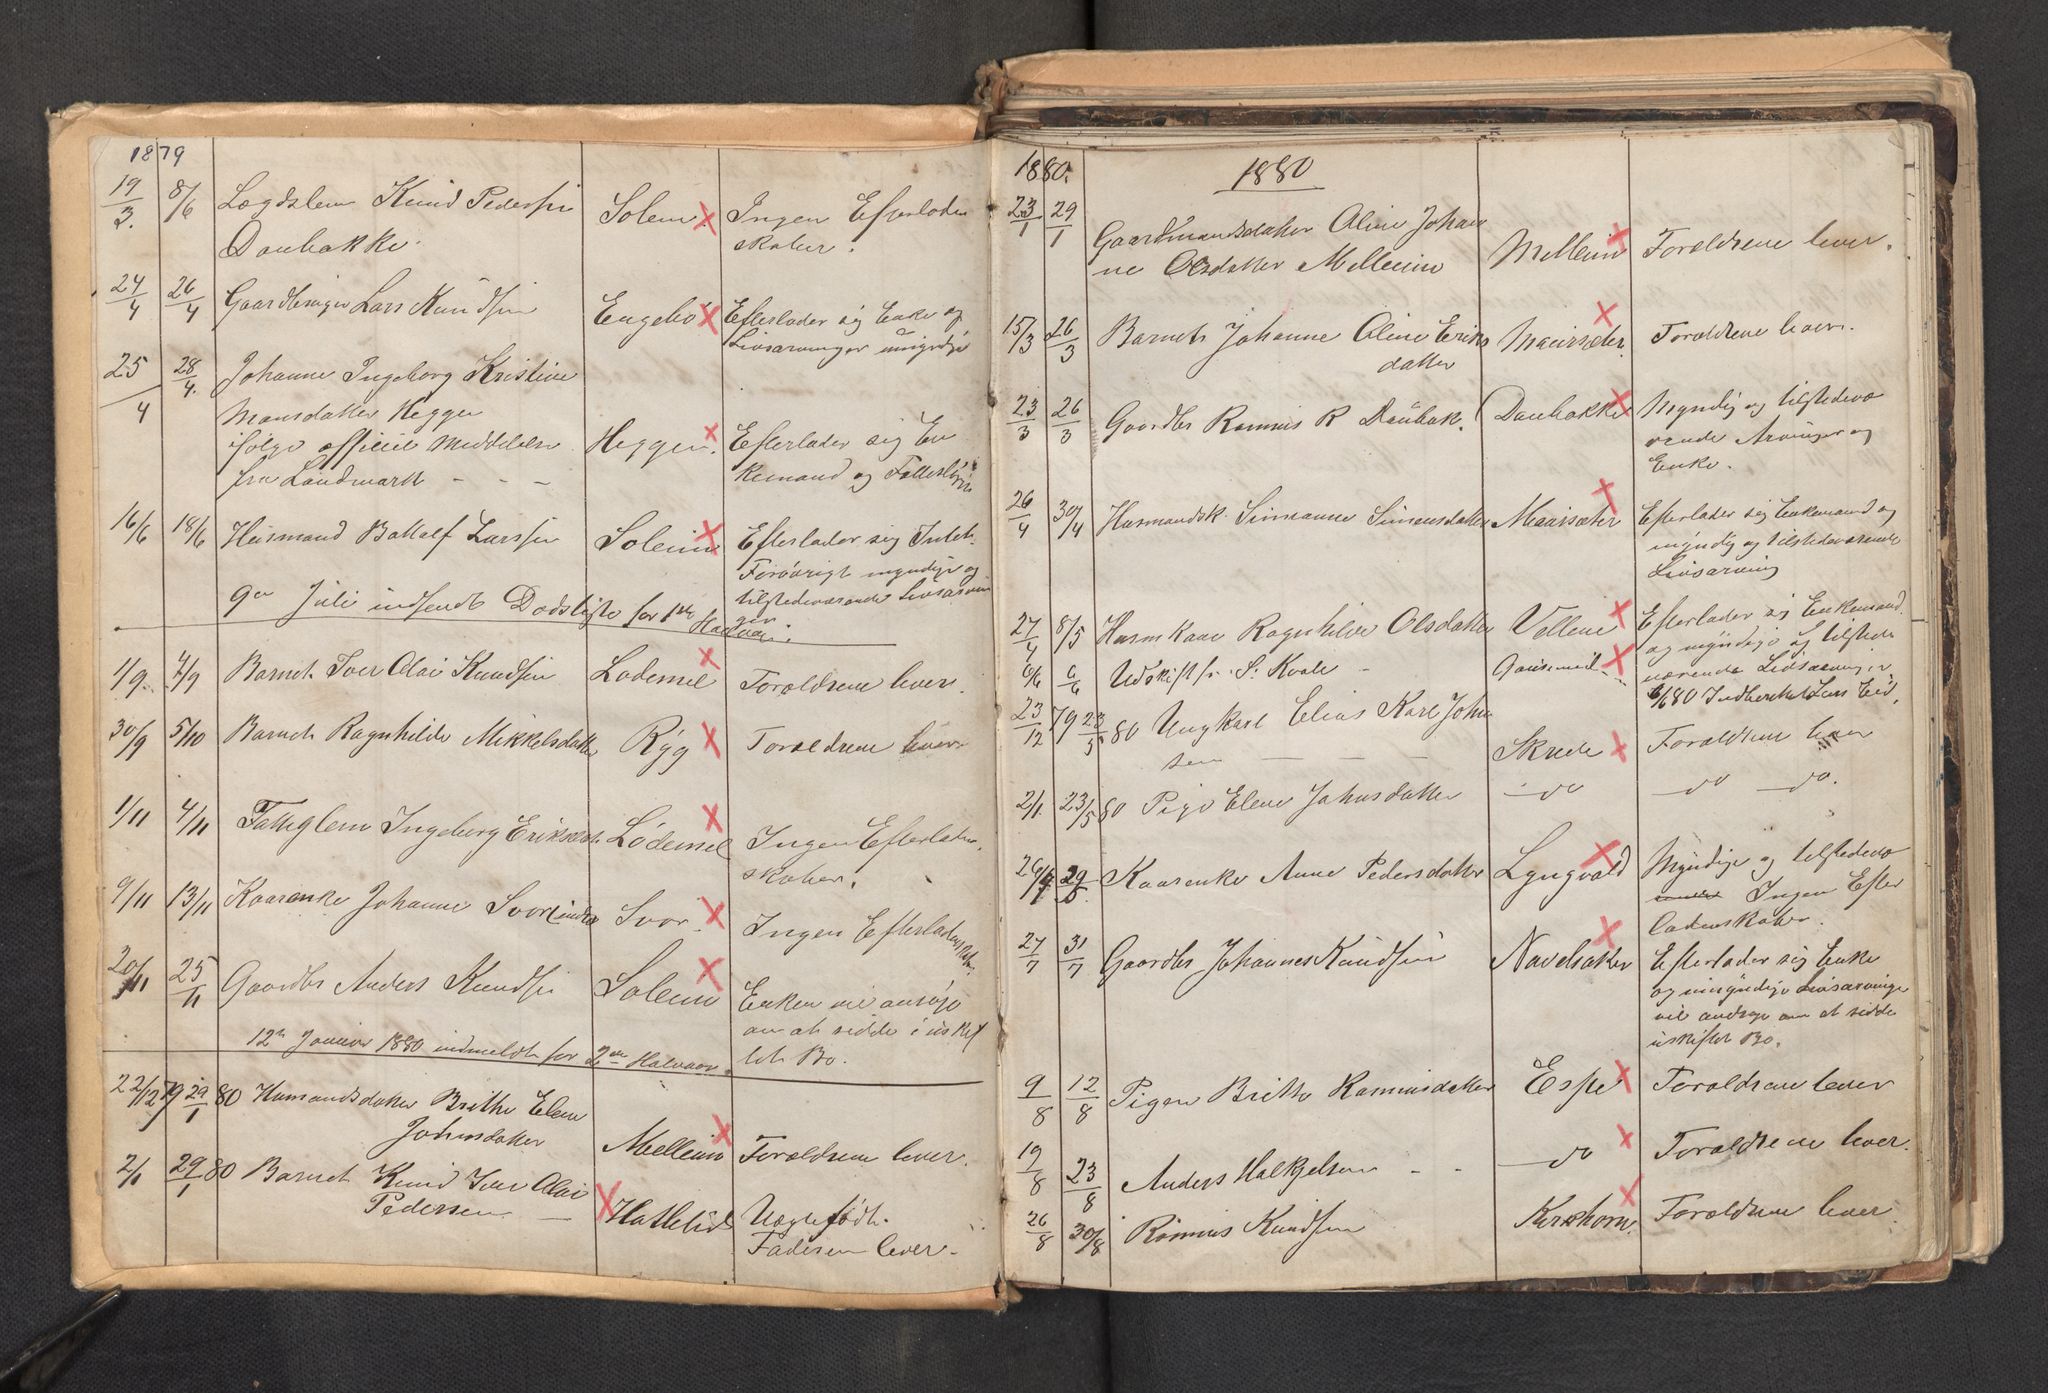 1879
19/3 8/6 Lægdslem Knud Pedersen Solem Ingen Efterladen
Daubakke. skaber.
24/4 26/4 Gaardbruger Lars Knudsen Engebö Efterlader sig Enke og
Livsarvinger umyndige
25/4 28/4 Johanne Ingeborg Kristine
Monsdatter Hegger
ifölge officiel Meddelelse Heggen. Efterlader sig En
fra Landmark - - - kemand og Fællesbörn
16/6 18/6 Husmand Bottolf Larssen Soleim Efterlader sig Intet.
Forövrigt myndige og
tilstedeværende Livsarvin
ger
9de Juli indsendt Dödsliste for 1ste Halvaar.
1/9. 4/9 Barnet Iver Olai Knudsen Lödemel Forældrene lever.
30/9 5/10 Barnet Ragnhilde Mikkelsdatter Ryg Forældrene lever
1/11 4/11 Fattiglem Ingeborg Eriksdatter Lödemel Ingen Efterladen
skaber.
9/11 13/11 Kaarenke Johanne Svor Ingen Efterladenskaber
20/11 25/11 Gaardbr Anders Knudsen Soleim Enken vil ansöge
om at sidde i uskif
tet Bo.
12te Januar 1880 indmeldt for 2den Halvaar.
22/12 79 29/1 80 Husmandsdatter Brithe Elene
Johnsdatter Melleim Forældrene lever.
2/1 29/1 80 Barnet Knud Iver Olai
Pedersen - Hatlelid Uægtefödt.
Faderen lever -
1880. 1880
23/1 29/1 Gaardmandsdatter Oline Johan
ne Olsdatter Melleim Melleim Forældrene lever.
15/3 26/3 Barnet Johanne Oline Eriks Maursæter. Forældrene lever.
datter
23/3 26/3 Gaardbr Rasmus R Daubak. Daubakke Myndig og tilstedevæ
rende Arvinger og
Enke.
26/4 30/4 Husmandsk. Simanne Simensdatter Maursæter Efterlader sig Enkemand og
myndig og tilstedeværende
Livsarving
27/4 8/5 Husmkaar Ragnhilde Olsdatter Velleim Efterlader sig Enkemand
og myndige og tilstede
værende Livsarvinger
6/6 6/6 Udskift fr. S. Kvale - 6/6 80 Indberettet Lars Eid.
23/12 79 23/5 80 Ungkarl Elias Karl John
sen - - - Skrede Forældrene lever
2/1 23/5 80 Pige Elene Johnsdatter - do - do - do.
29/6 Kaarenke Anne Pedersdatter Lyngvold Myndige og tilstedevæ
Ingen Efter
ladenskaber.
27/7 31/7 Gaardbr Johannes Knudsen Navelsaker Efterlader sig Enke
og umyndige Livsarvinge
vil andrage om at sidde
i uskiftet Bo.
9/8 12/8 Pigen Britte Rasmusdatter Espe Forældrene lever
19/8 23/8 Anders Halkjelsen - - - do Forældrene lever.
26/8 30/8 Rasmus Knudsen Kirkhorn. Forældrene lever.